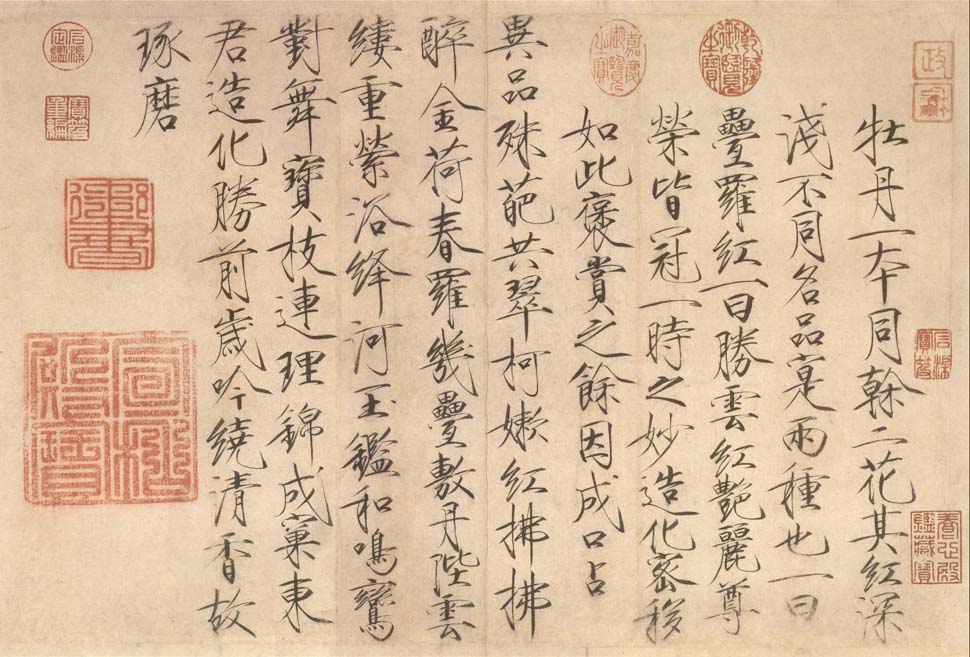 政和
牡丹一本同幹二花其紅深
淺不同名品寔兩種也一曰
疊羅紅一曰勝雲紅艷麗尊
榮皆冠一時之妙造化密移
如此褒賞之餘因成口占
異品殊葩共翠柯嫩紅拂拂
醉金荷春羅幾疊敷丹陛雲
縷重縈浴絳河玉鑑和鳴鸞
對舞寶枝連理錦成窠東
君造化勝前歲吟繞清香故
琢磨
乾隆御覽之寶
嘉慶御覽之寶
石渠寶笈
養心殿鑑藏寶
石渠定鑑
寶笈重編
御書